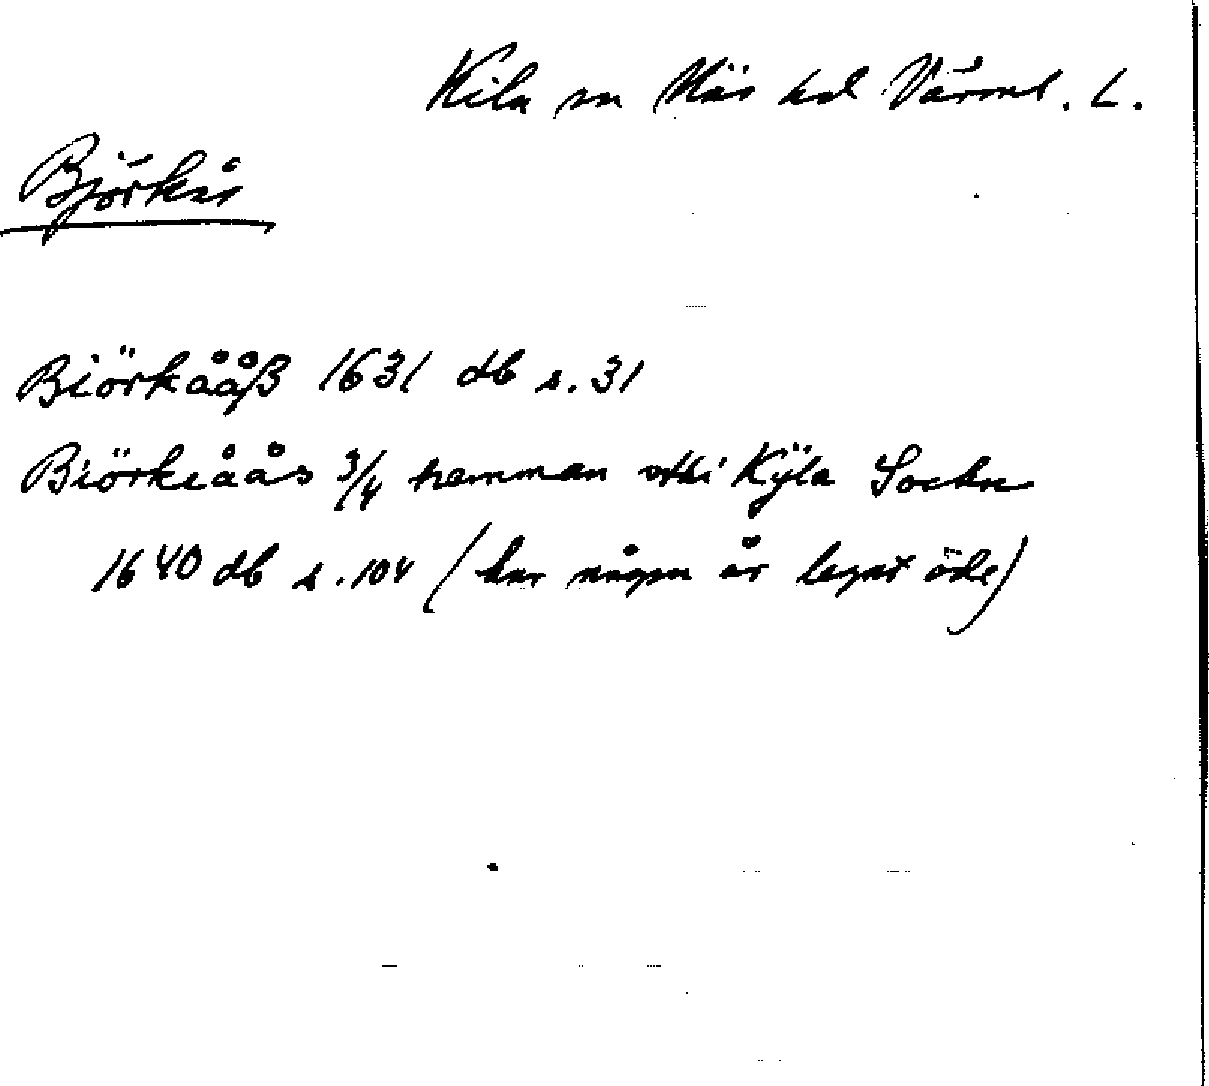 Kila sn Näs hd Värml. L.
Björkås
Biörkååß 1631 db s. 31
Biörkeåås 3/4 hemman uthi Kÿla Sochn
1640 db s. 104 (har någre år legat öde)